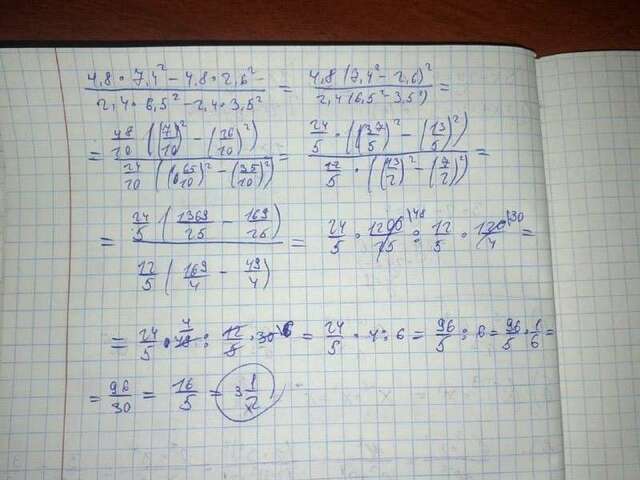 (4,8 · 7,4² − 4,8 · 2,6²) / (2,4 · 6,5² − 2,4 · 3,5²) = (4,8 (7,4² − 2,6)²) / (2,4 (6,5² − 3,5²)) =
= (48/10 ((7/10)² − (26/10)²)) / (24/10 ((65/10)² − (35/10)²)) = (24/5 · ((37/5)² − (13/5)²)) / (12/5 · ((13/2)² − (7/2)²)) =
= (24/5 (1369/25 − 169/25)) / (12/5 (169/4 − 49/4)) = 24/5 · 1200/25 \48 : 12/5 · 120/4 \30 =
= 24/5 · 48 4 : 12/5 · 30 \6 = 24/5 · 4 : 6 = 96/5 : 6 = 96/5 · 1/6 =
= 96/30 = 16/5 = 3 1/2